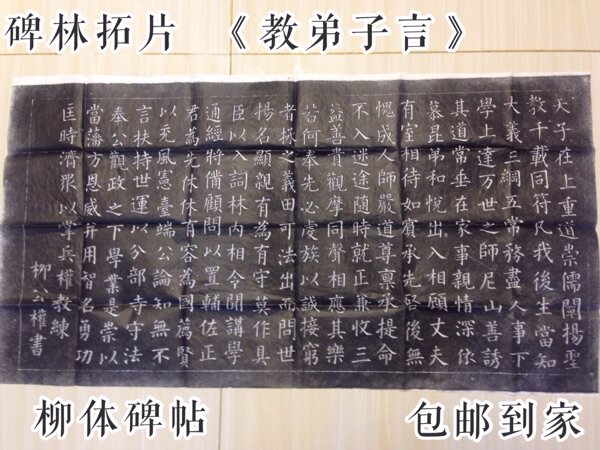 碑林拓片 《教弟子言》
天子在上重道崇儒闡揚聖
教千載同符凡我後生當知
大義三綱五常務盡人事下
學上達万世之師尼山善誘
其道常垂在家事親情深依
慕昆弟和悅出入相顧丈夫
有室相待如賓承先啓後無
愧成人師嚴道尊稟承提命
不入迷途随時就正兼收三
益蓋貴觀摩同聲相應其樂
若何奉先必虔族以誠接窮
者授之義田可法出而問世
揚名顯親有為有守莫作具
臣以入詞林内相令聞講學
通經將備顧問以置輔佐正
君為先休休有容為國薦賢
以充風憲臺端公論知無不
言扶持世運以分部寺守法
奉公觀政之下學業是崇以
當藩方恩威并用智名勇功
匡時濟眾以掌兵權教練
柳公權書
柳体碑帖 包邮到家